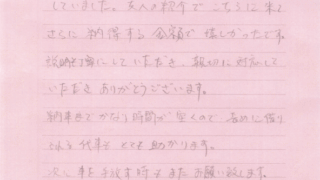 していました。友人の紹介でこちらに来て
さらに納得する金額で嬉しかったです
説明も丁寧にしていただき、親切に対応して
いただき ありがとうございます。
納車までかなり時間が空くので
とても助かります。
次、車を手放す時もまたお願い致します。